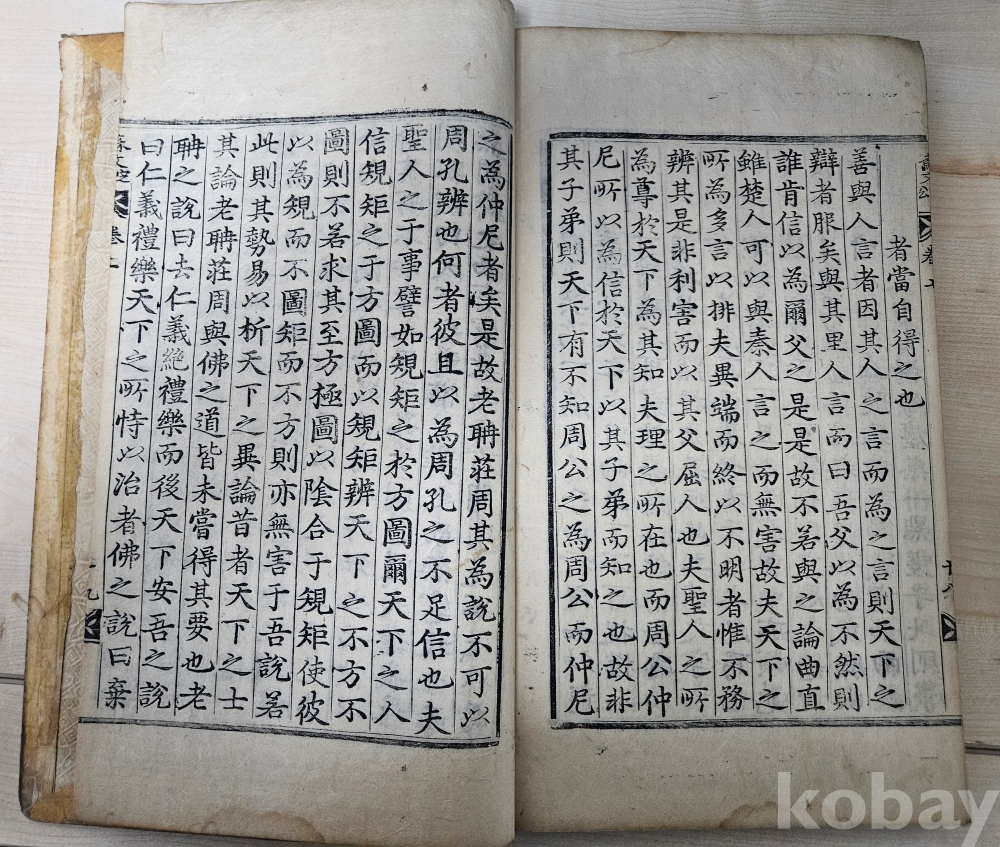 者當自得之也
善與人言者因其人之言而為之言則天下之
辯者服矣與其里人言而曰吾父以為不然則
誰肯信以為爾父之是是故不若與之論曲直
雖楚人可以與秦人言之而無害故夫天下之
所為多言以排夫異端而終以不明者惟不務
辨其是非利害而以其父屈人也夫聖人之所
為尊於天下為其知夫理之所在也而周公仲
尼所以為信於天下以其子弟而知之也故非
其子弟則天下有不知周公之為周公而仲尼
之為仲尼者矣是故老聃莊周其為說不可以
周孔辨也何者彼且以為周孔之不足信也夫
聖人之于事譬如規矩之於方圖爾天下之人
信規矩之于方圖而以規矩辨天下之不方不
圖則不若求其至方極圖以陰合于規矩使彼
以為規而不圖矩而不方則亦無害于吾說若
此則其勢易以析天下之異論昔者天下之士
其論老聃莊周與佛之道皆未嘗得其要也老
聃之說曰去仁義絶禮樂而後天下安吾之說
曰仁義禮樂天下之所恃以治者佛之說曰棄
kobay